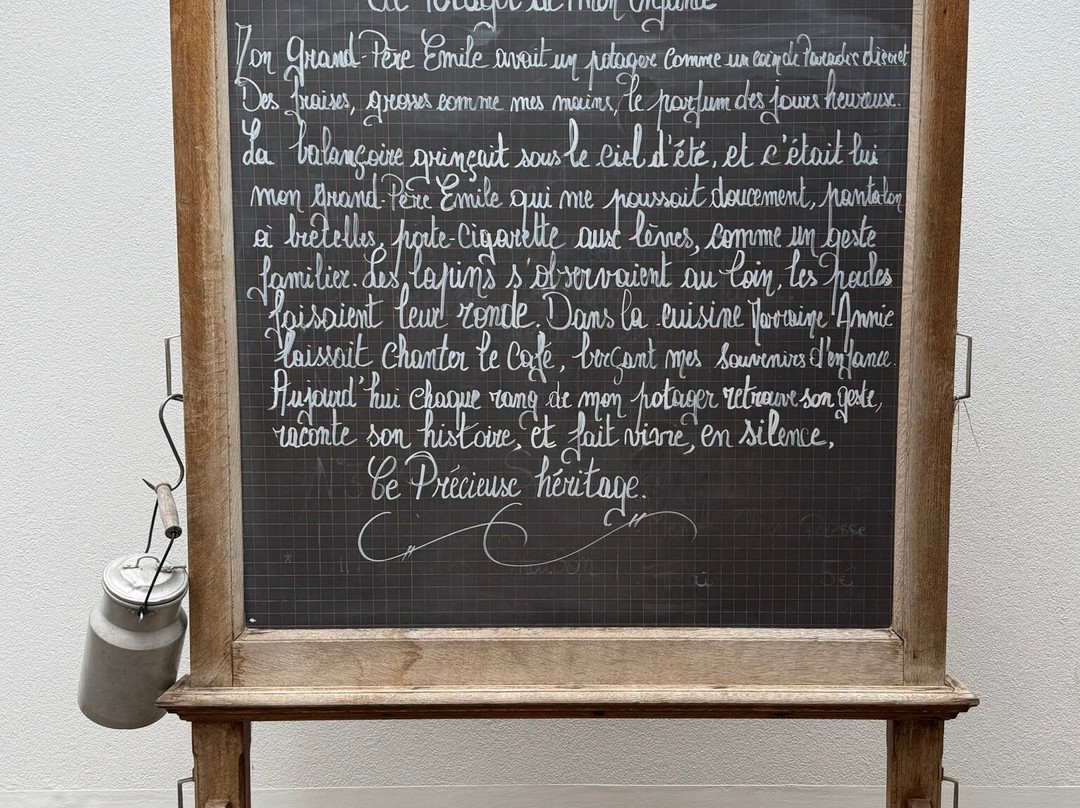 Le Potager de mon enfance
Mon Grand-Père Emile avait un potager comme un coin de Paradis discret
Des fraises, grosses comme mes mains, le parfum des jours heureux.
La balançoire grinçait sous le ciel d'été, et c'était lui
mon grand-Père Emile qui me poussait doucement, pantalon
à bretelles, porte-cigarette aux lèvres, comme un geste
familier. Les lapins s'observaient au loin, les poules
faisaient leur ronde. Dans la cuisine Marraine Annie
laissait chanter le café, berçant mes souvenirs d'enfance.
Aujourd'hui chaque rang de mon potager retrouve son geste,
raconte son histoire, et fait vivre, en silence,
Ce Précieuse héritage.